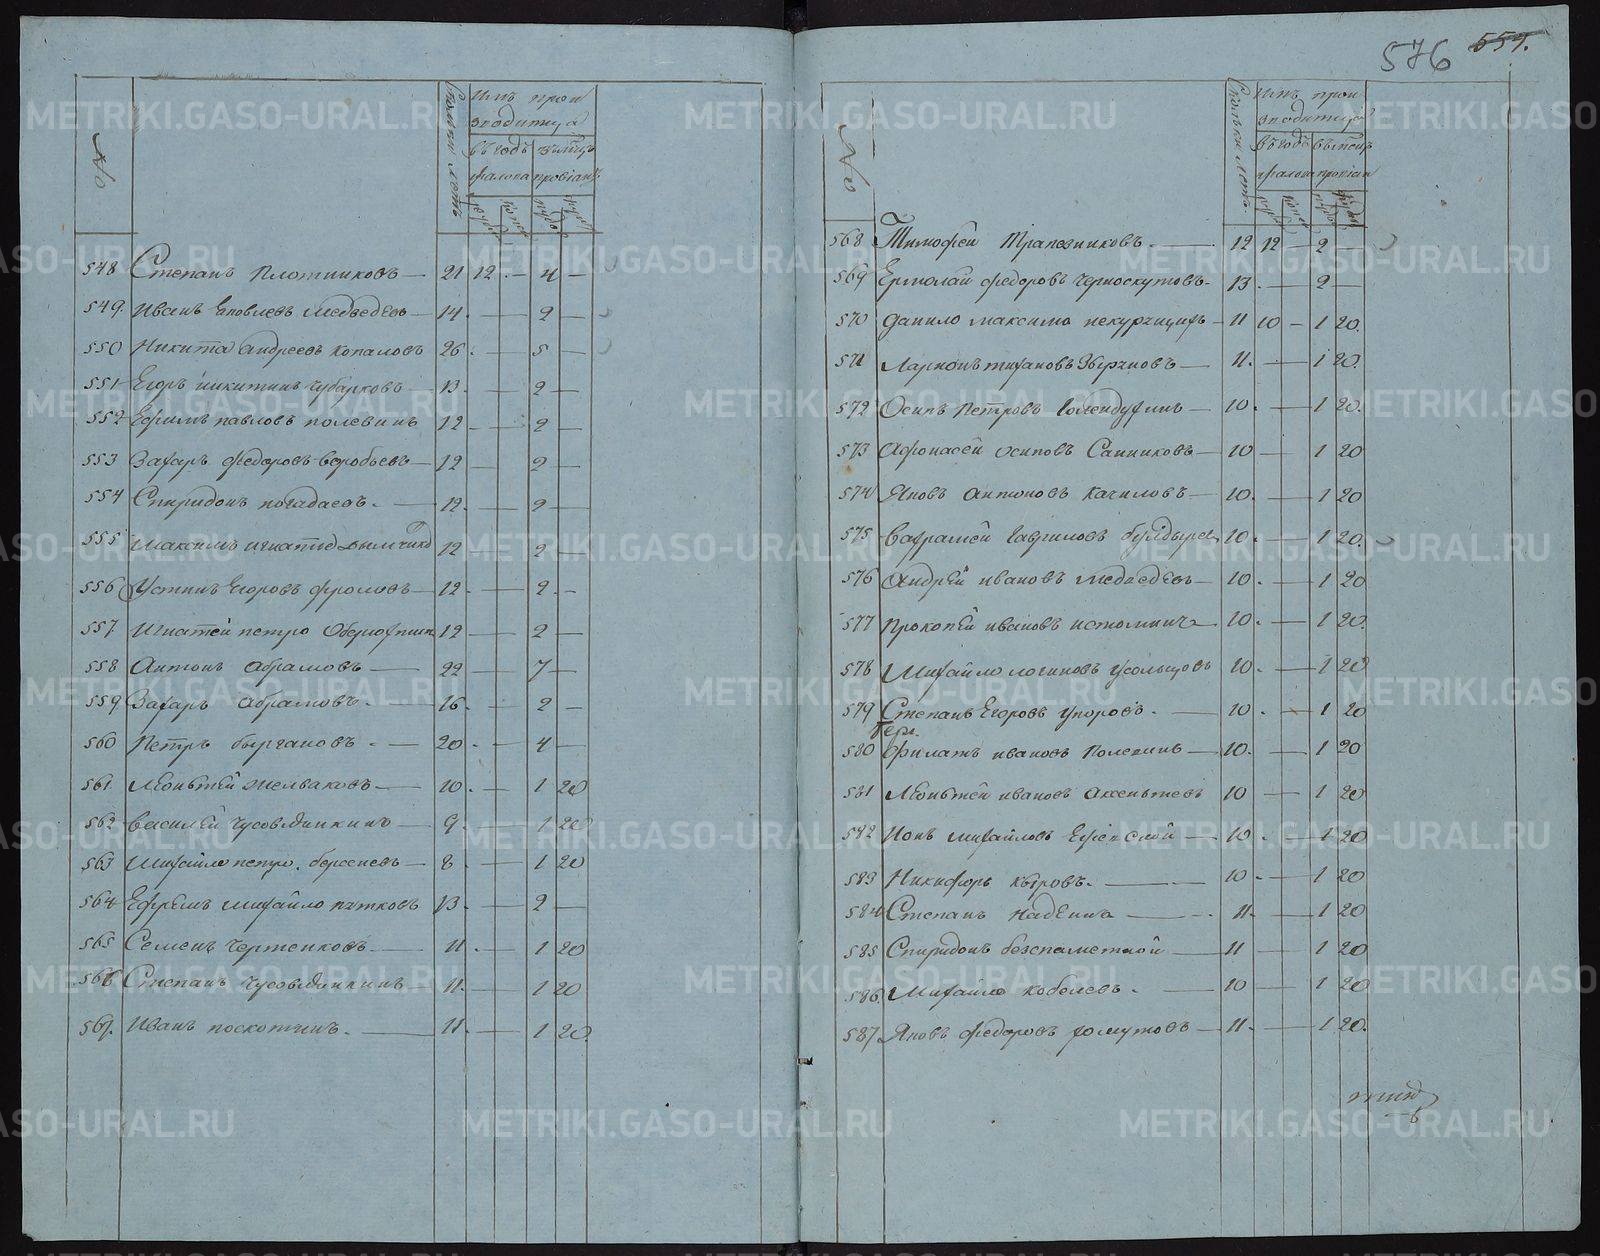 576 554.
№
Сколько летъ
Имъ произ
водитца
въ годъ
въ мсцъ
жалова
провiанъ
548 Степанъ Плотниковъ — 21 12 . — 4 —
549. Иванъ Яковлевъ Медведевъ — 14 . — 2 —
550 Никита Андреевъ Копаловъ 26 . — 5 —
551 Егоръ Никитинъ Чубарковъ — 13 . — 2 —
552 Ефимъ Павловъ Полевинъ 12 — 2 —
553 Захаръ Федоровъ Воробьевъ — 12 — 2 —
554 Спиридонъ Погадаевъ . — 12 . — 2 —
555 Максимъ Игнатьев 12 — 2 —
556 Устинъ Егоровъ Фроловъ — 12 . — 2 . —
557. Игнатей Петро 12 — 2 —
558 Антонъ Абрамовъ — 22 — 7 —
559 Захаръ Абрамовъ . — 16 . — 2 —
560 Петръ . — 20 . — 4 —
561. Леонтей Желваковъ — 10 . — 1 20
562 Василей Чусовлянкинъ — 9 . — 1 20
563 Михайло петро . берсеневъ — 8 . — 1 20
564 Ефремъ Михайло Пятковъ 13 . — 2 —
565 Семенъ Чертенковъ — 11 . — 1 20
566 Степанъ Чусовлянкинъ — 11 . — 1 20
567. Иванъ Поскотинъ . — 11 . — 1 20.
№
Сколько летъ.
Имъ произ
водитца
въ годъ
въ мсцъ
жалова
провiан
568 Тимофей Трапезниковъ . — 12 12 — 2 —
569 Ермолай Федоровъ Черноскутовъ . 13 . — 2 —
570 Данило Максимо — 11 10 — 1 20.
571 Ларионъ — 11 . — 1 20.
572 Осипъ Петровъ — 10 . — 1 20.
573 Афонасей Осиповъ Санниковъ — 10 — 1 20
574 Яковъ Антоновъ Качиловъ — 10 . — 1 20
575 Варфамей Гавриловъ Булдырев 10 . — 1 20.
576 Андрей Ивановъ Медведевъ — 10 . — 1 20
577 Прокопей Ивановъ Истоминъ — 10 . — 1 20.
578 Михайло Логиновъ Усольцовъ 10 . — 1 20
579 Степанъ Егоровъ Упоровъ . — 10 . — 1 20
580 Филатъ Ивановъ Полевинъ — 10 . — 1 20
581 Леонтей Ивановъ Аксеньтьевъ 10 — 1 20
582 Ионъ Михайловъ — 10 . — 1 20
583 Никифоръ Кыровъ . — 10 . — 1 20
584 Степанъ Надеинъ — 11 . — 1 20
585 Спиридонъ Безпаметной — 11 — 1 20
586. Михайло Кобелевъ . — 10 — 1 20
587 Яковъ Федоровъ Хомутовъ — 11 . — 1 20.
METRIKI.GASO-URAL.RU